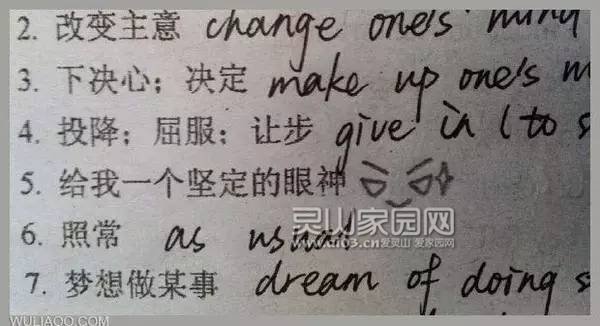 2. 改变主意 change one's mind
3. 下决心；决定 make up one's m
4. 投降；屈服；让步 give in (to s
5. 给我一个坚定的眼神
灵山家园网
www.dl03.cn爱灵山 爱家园网
6. 照常 as usual
7. 梦想做某事 dream of doing s
WULIAOO.COM